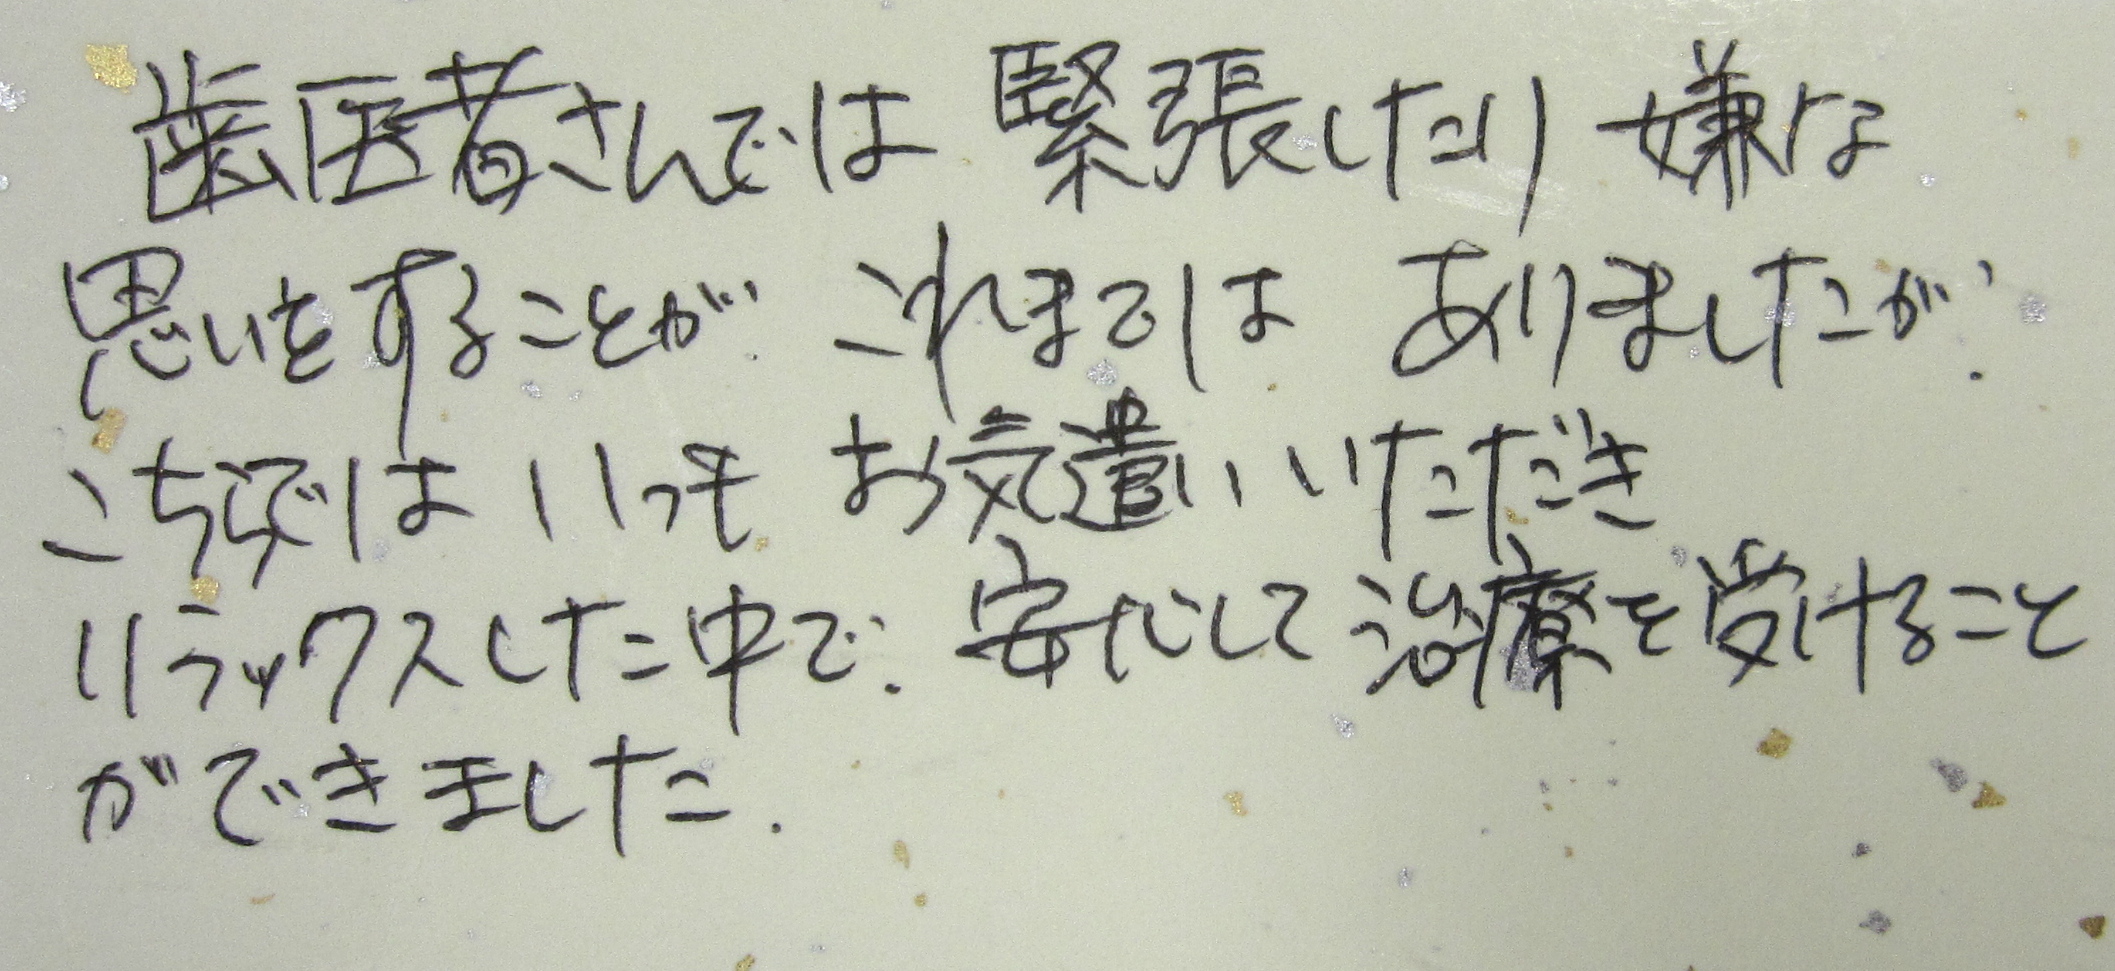 歯医者さんでは 緊張したり 嫌な
思いをすることが. これまでは ありましたが.
こちらでは いつも お気遣いいただき
リラックスした中で. 安心して治療を受けること
ができました.